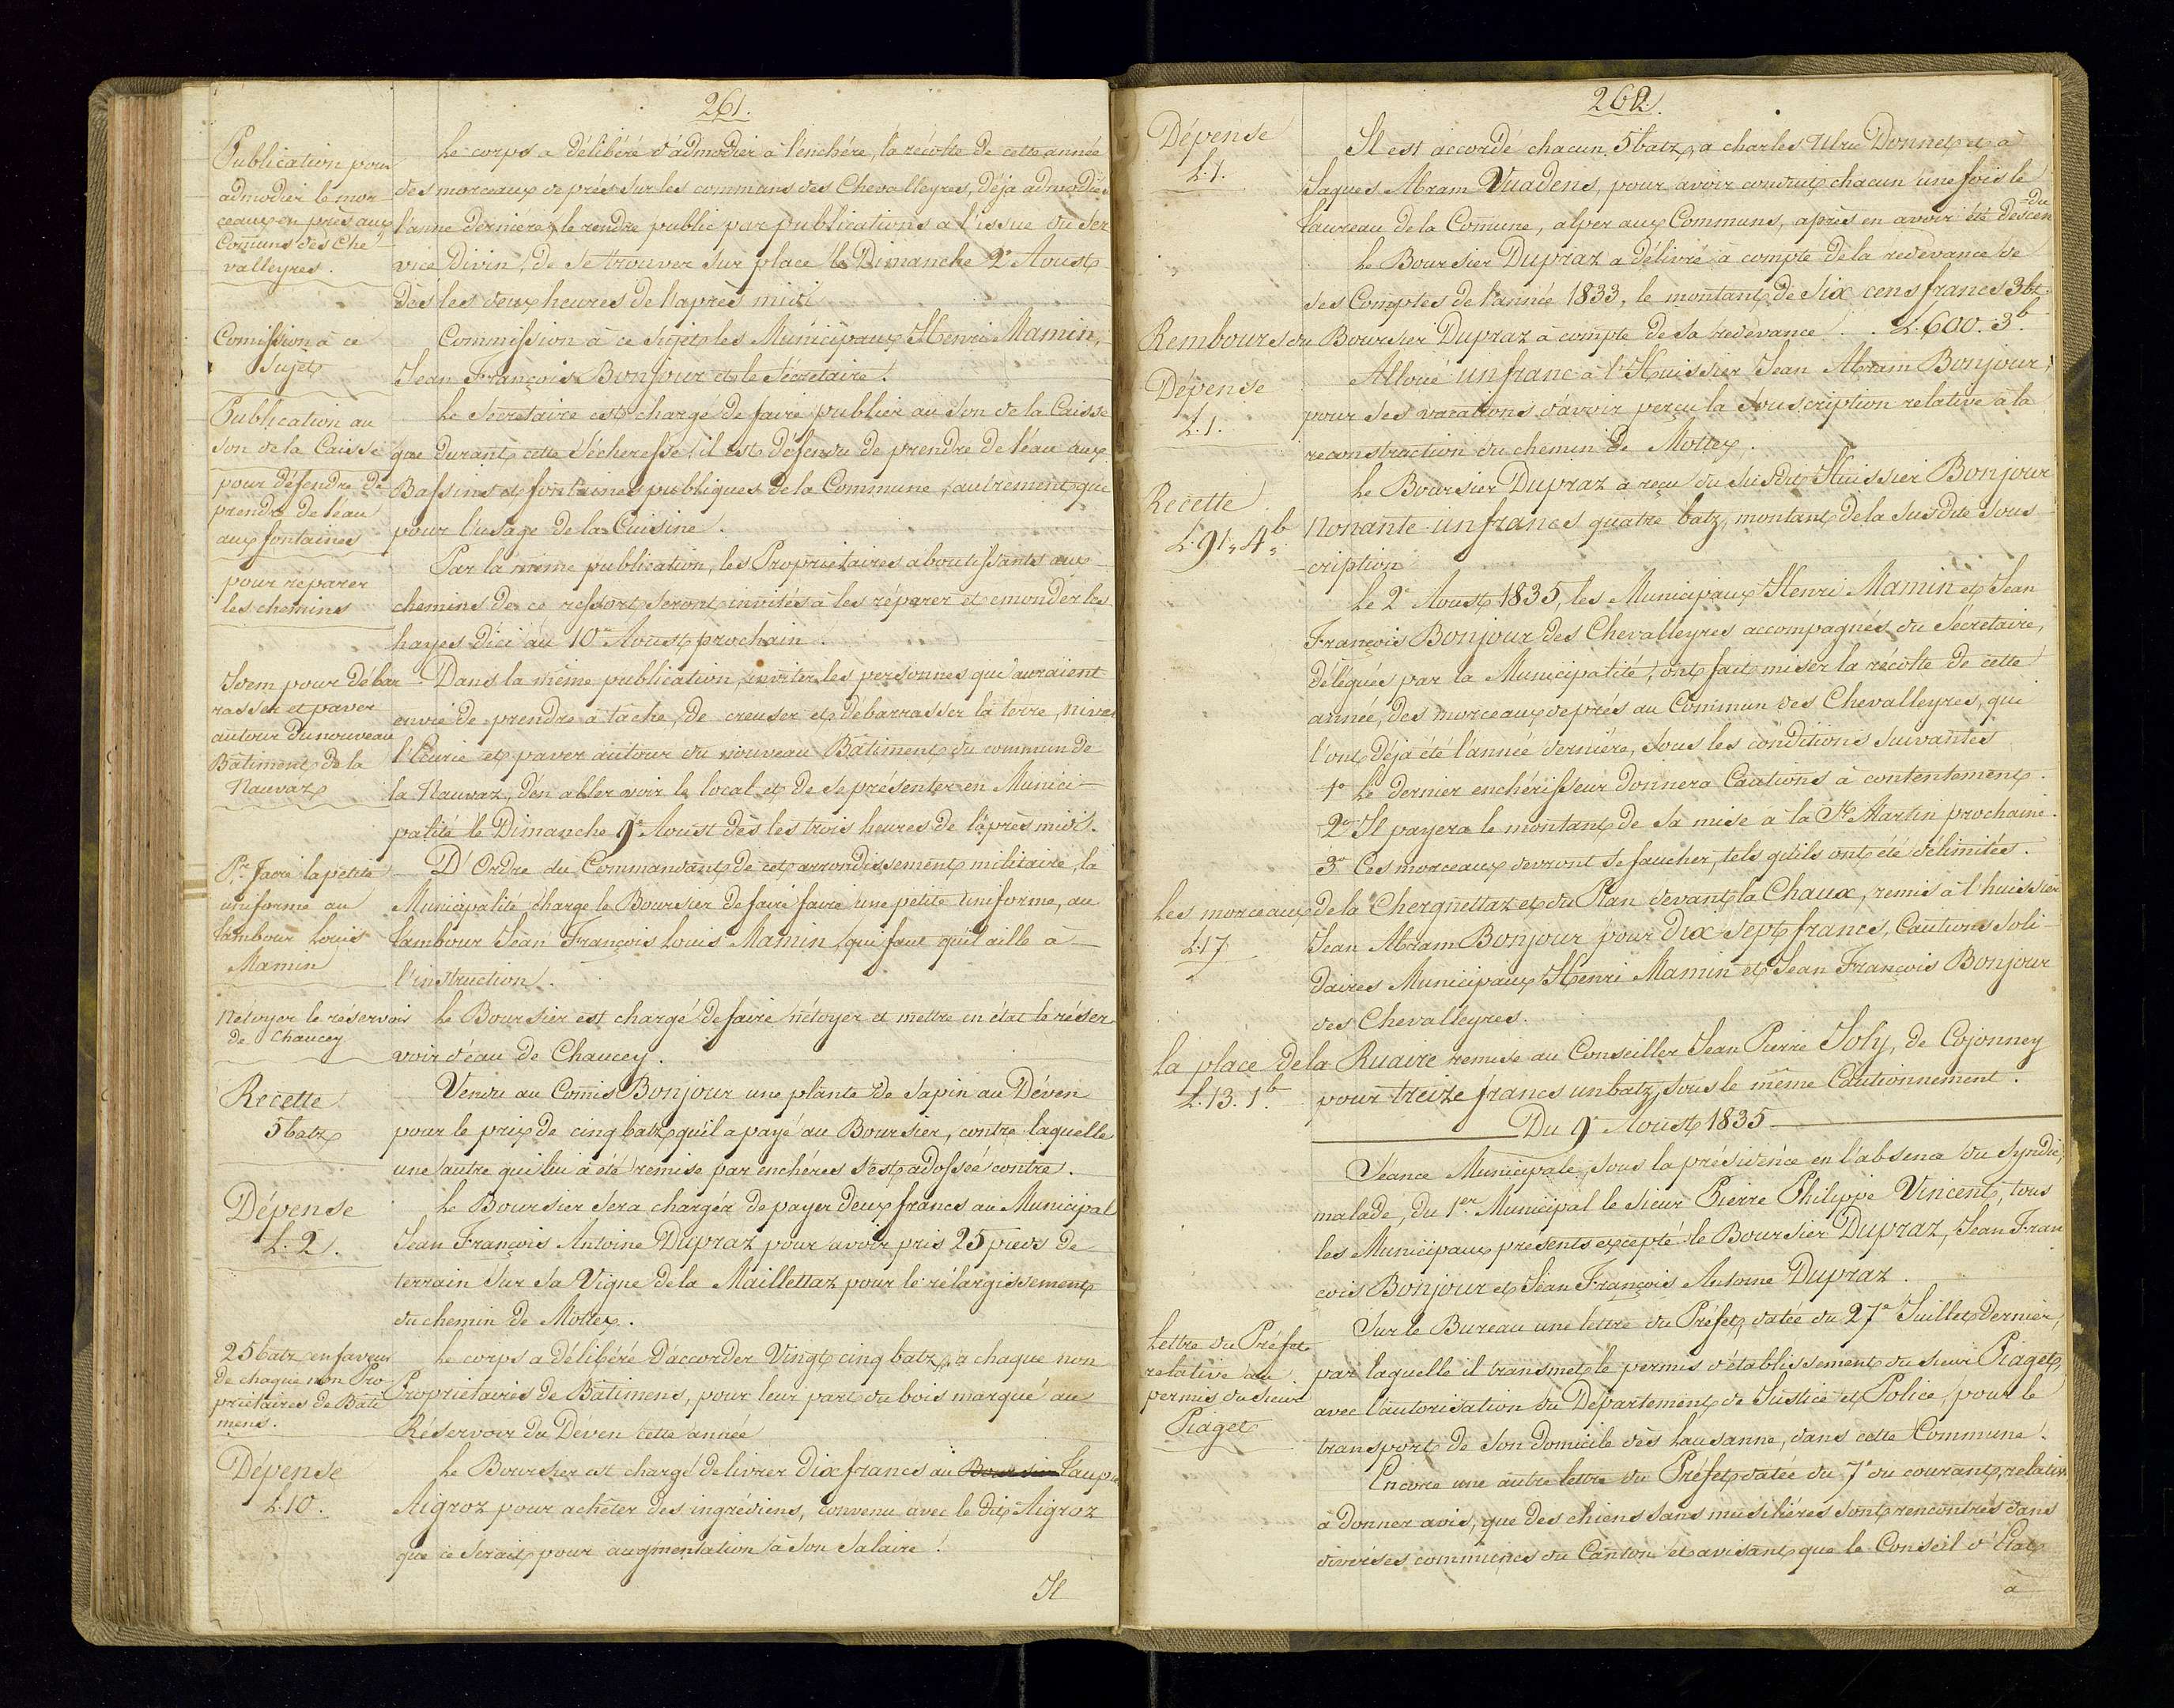 261.
Publication pour
admodier le mor
ceaux en prés aux
Comuns des Che
valleyres.
Le corps a délibéré d'admodier à l'enchére, la récolte de cette année
des morceaux de prés sur les communs des Chevalleyres, déja admodiés
l'anné derniére, le rendre public par publications à l'issue du ser
vice divin, de se trouver sur place le Dimanche 2e Aoust
dès les deux heures de l'après midi
Comission à ce
Sujet
Commission à ce sujet les Municipaux Henri Mamin,
Jean François Bonjour et le Sécrétaire.
Publication au
son de la Caisse
pour défendre de
prendre de l'éau
aux fontaines
Le Sécretaire est chargé de faire publier au son de la Caisse
que durant cette sécheresse il est défendu de prendre de l'éau aux
Bassins et fontaines publiques de la Commune, autrement que
pour l'usage de la Cuisine.
pour réparer
les chemins
Par la même publication, les Propriétaires aboutissants aux
chemins de ce ressort seront invités à les réparer et émonder les
hayes d'ici au 10e Aoust prochain.
Idem pour débar
rasser et paver
autour du nouveau
Bâtiment de la
Nauvaz
Dans la même publication, inviter les personnes qui auraient
envie de prendre à tâche, de creuser et débarrasser la terre, nivel
l'Ecurie et paver autour du nouveau Bâtiment du commun de
la Nauvaz, d'en abler voir le local et de se présenter en Munici-
palité le Dimanche 9e Aoust dès les trois heures de l'après midi.
Pr. faire la petite
uniforme au
tambour Louis
Mamin
D'Ordre du Commandant de cet arrondissement militaire, la
Municipalité charge le Boursier de faire faire une petite uniforme, au
tambour Jean François Louis Mamin qui faut qu'il aille à
l'instruction.
Nétoyer le réservoir
de Chaucey
Le Boursier est chargé de faire nétoyer et mettre en état le réser
voir d'éau de Chaucey.
Recette
5 batz
Vendu au Comis Bonjour une plante de sapin au Déven
pour le prix de cinq batz qu'il a payé au Boursier, contre laquelle
une autre qui lui a été remise par enchéres s'est adossée contre.
Dépense
L. 2.
Le Boursier sera chargér de payer deux francs au Municipal
Jean François Antoine Dupraz pour avoir pris 25 pieds de
terrain sur sa Vigne de la Maillettaz pour le rélargissement
du chemin de Mottex.
25 batz en faveur
de chaque non Pro
priétaires de Bâti
mens.
Le corps a délibéré d'accorder Vingt cinq batz, à chaque non
Propriétaires de Bâtimens, pour leur part du bois marqué au
Réservoir du Déven cette année
Dépense
L. 10.
Le Boursier est chargé de livrer dix francs au Boursier taupier
Aigroz pour achêter des ingrédiens, convenu avec le dit Aigroz
que ce serait pour augmentation à son salaire.
Il
262.
Dépense
L. 1.
Il est accordé chacun 5 batz, a charles Ulric Donnet et à
Jaques Abram Vuadens, pour avoir conduit chacun une fois le
taureau de la Comune, alper aux Communs, après en avoir été descen
-du
Le Boursier Dupraz a délivré à compte de la redevance de
ses Comptes de l'année 1833, le montant de Six cens francs 3 bt.
Rembours du Boursier Dupraz à compte de sa redévance . . L. 600. 3b.
Dépense
L. 1.
Alloué un franc à l'Huissier Jean Abram Bonjour,
pour ses vacations d'avoir perçu la souscription relative à la
reconstruction du chemin de Mottex.
Recette
L. 91,, 4b
Le Boursier Dupraz a reçu du susdit Huissier Bonjour
Nonante un francs quatre batz, montant de la susdite sous
-cription
Le 2e Aoust 1835, les Municipaux Henri Mamin et Jean
François Bonjour des Chevalleyres accompagnés du Sécretaire,
délégués par la Municipalité, ont fait miser la récolte de cette
année, des morceaux de prés au Commun des Chevalleyres, qui
l'ont déja été l'année derniére, sous les conditions suivantes
1o Le dernier enchérisseur donnera Cautions à contentement.
2o Il payera le montant de sa mise à la St. Martin prochaine.
3o Ces morceaux devront se faucher, tels qu'ils ont été délimités.
Les morceaux de la Cherguettaz et du Plan devant la Chaux, remis à l'huissier
L. 17
Jean Abram Bonjour pour Dix sept francs, Cautions soli-
daires Municipaux Henri Mamin et Jean François Bonjour
des Chevalleyres.
la place de la Ruaire remise au Conseiller Jean Pierre Joly, de Cojonney
L. 13. 1b.
pour treize francs un batz, sous le même Cautionnement.
Du 9e Aoust 1835
Séance Municipale, sous la présidence en l'absence du Syndic,
malade, du 1er Municipal le sieur Pierre Philippe Vincent, tous
les Municipaux présents excepté le Boursier Dupraz, Jean Fran
çois Bonjour et Jean François Antoine Dupraz.
Lettre du Préfet
relative au
permis du sieur
Piaget
Sur le Bureau une lettre du Préfet, datée du 27e Juillet dernier,
par laquelle il transmet le permis d'établissement du sieur Piaget,
avec l'autorisation du Département de Justice et Police, pour le
transport de son domicile dès Lausanne, dans cette Commune.
Encore une autre lettre du Préfet datée du 7e du courant, relativ
à donner avis, que des chiens sans muselières sont rencontrés dans
diverses communes du Canton et avisant que le Conseil d'Etat
à